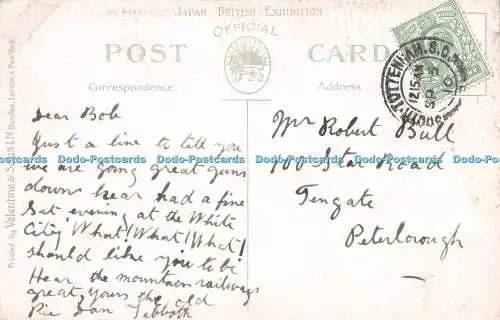 JAPAN BRITISH EXHIBITION.
OFFICIAL
POST CARD
Correspondence.
Address.
Printed by Valentine & Sons Ltd Dundee, London & New York.
TOTTENHAM.S.O.
12.15 AM
SP
10
Dear Bob
Just a line to tell you
we are going great guns
down hear had a fine
Sat evening at the White
City What! What! What!
should like you to be
Hear the mountain railways
great, yours the old
Pie Dan Tebboth
Mr Robert Ball
100 Star Road
Fengate
Peterborough
Dodo-Postcards Dodo-Postcards Dodo-Postcards Dodo-Postcards Dodo-Postcards